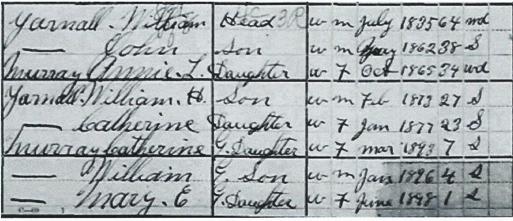 Yarnall. William Head w m July 1835 64 wd
— John Son w m May 1862 38 S
Murray Annie. L. Daughter w F Oct 1865 34 wd
Yarnall. William. H. Son w m Feb 1873 27 S
— Catherine Daughter w F Jan 1877 23 S
Murray Catherine G. Daughter w F mar 1893 7 S
— William G. Son w m Jan 1896 4 S
— Mary. E G. Daughter w F June 1898 1 S